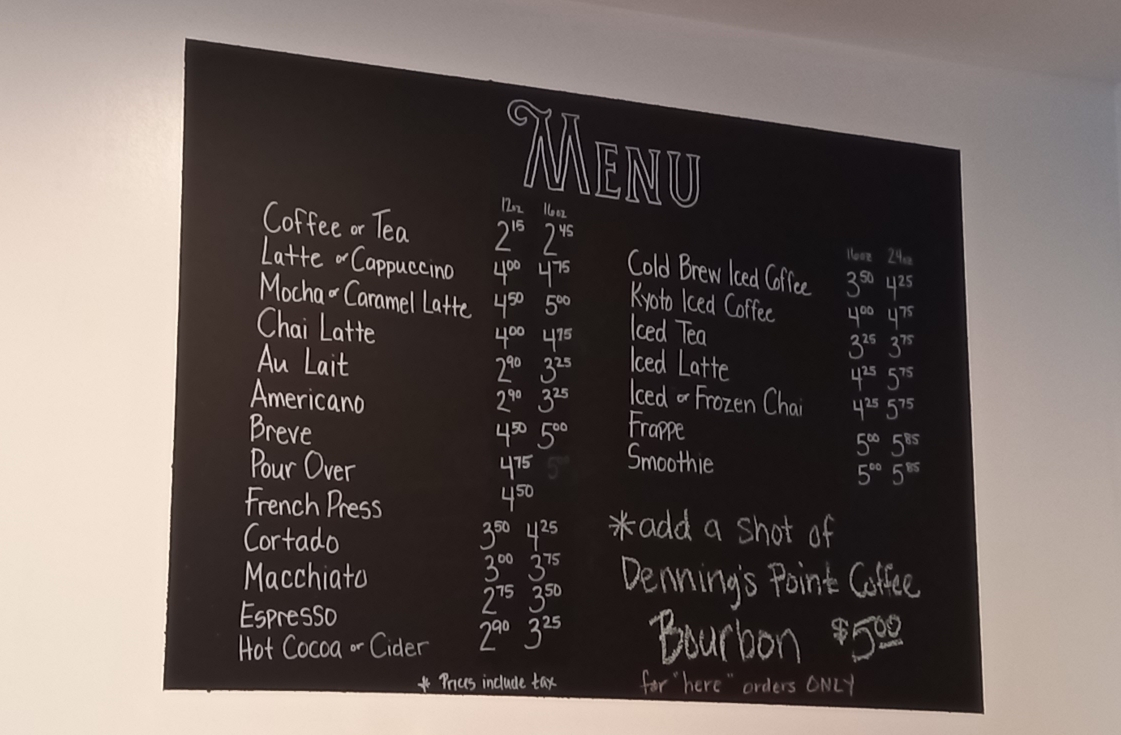 MENU
12oz 16oz
Coffee or Tea 2.15 2.45
Latte or Cappuccino 4.00 4.75
Mocha or Caramel Latte 4.50 5.00
Chai Latte 4.00 4.75
Au Lait 2.90 3.25
Americano 2.90 3.25
Breve 4.50 5.00
Pour Over 4.75
French Press 4.50
Cortado 3.50 4.25
Macchiato 3.00 3.75
Espresso 2.75 3.50
Hot Cocoa or Cider 2.90 3.25
* Prices include tax
16oz 24oz
Cold Brew Iced Coffee 3.50 4.25
Kyoto Iced Coffee 4.00 4.75
Iced Tea 3.25 3.75
Iced Latte 4.25 5.75
Iced or Frozen Chai 4.25 5.75
Frappe 5.00 5.85
Smoothie 5.00 5.85
*add a shot of
Denning's Point Coffee
Bourbon $5.00
for "here" orders ONLY